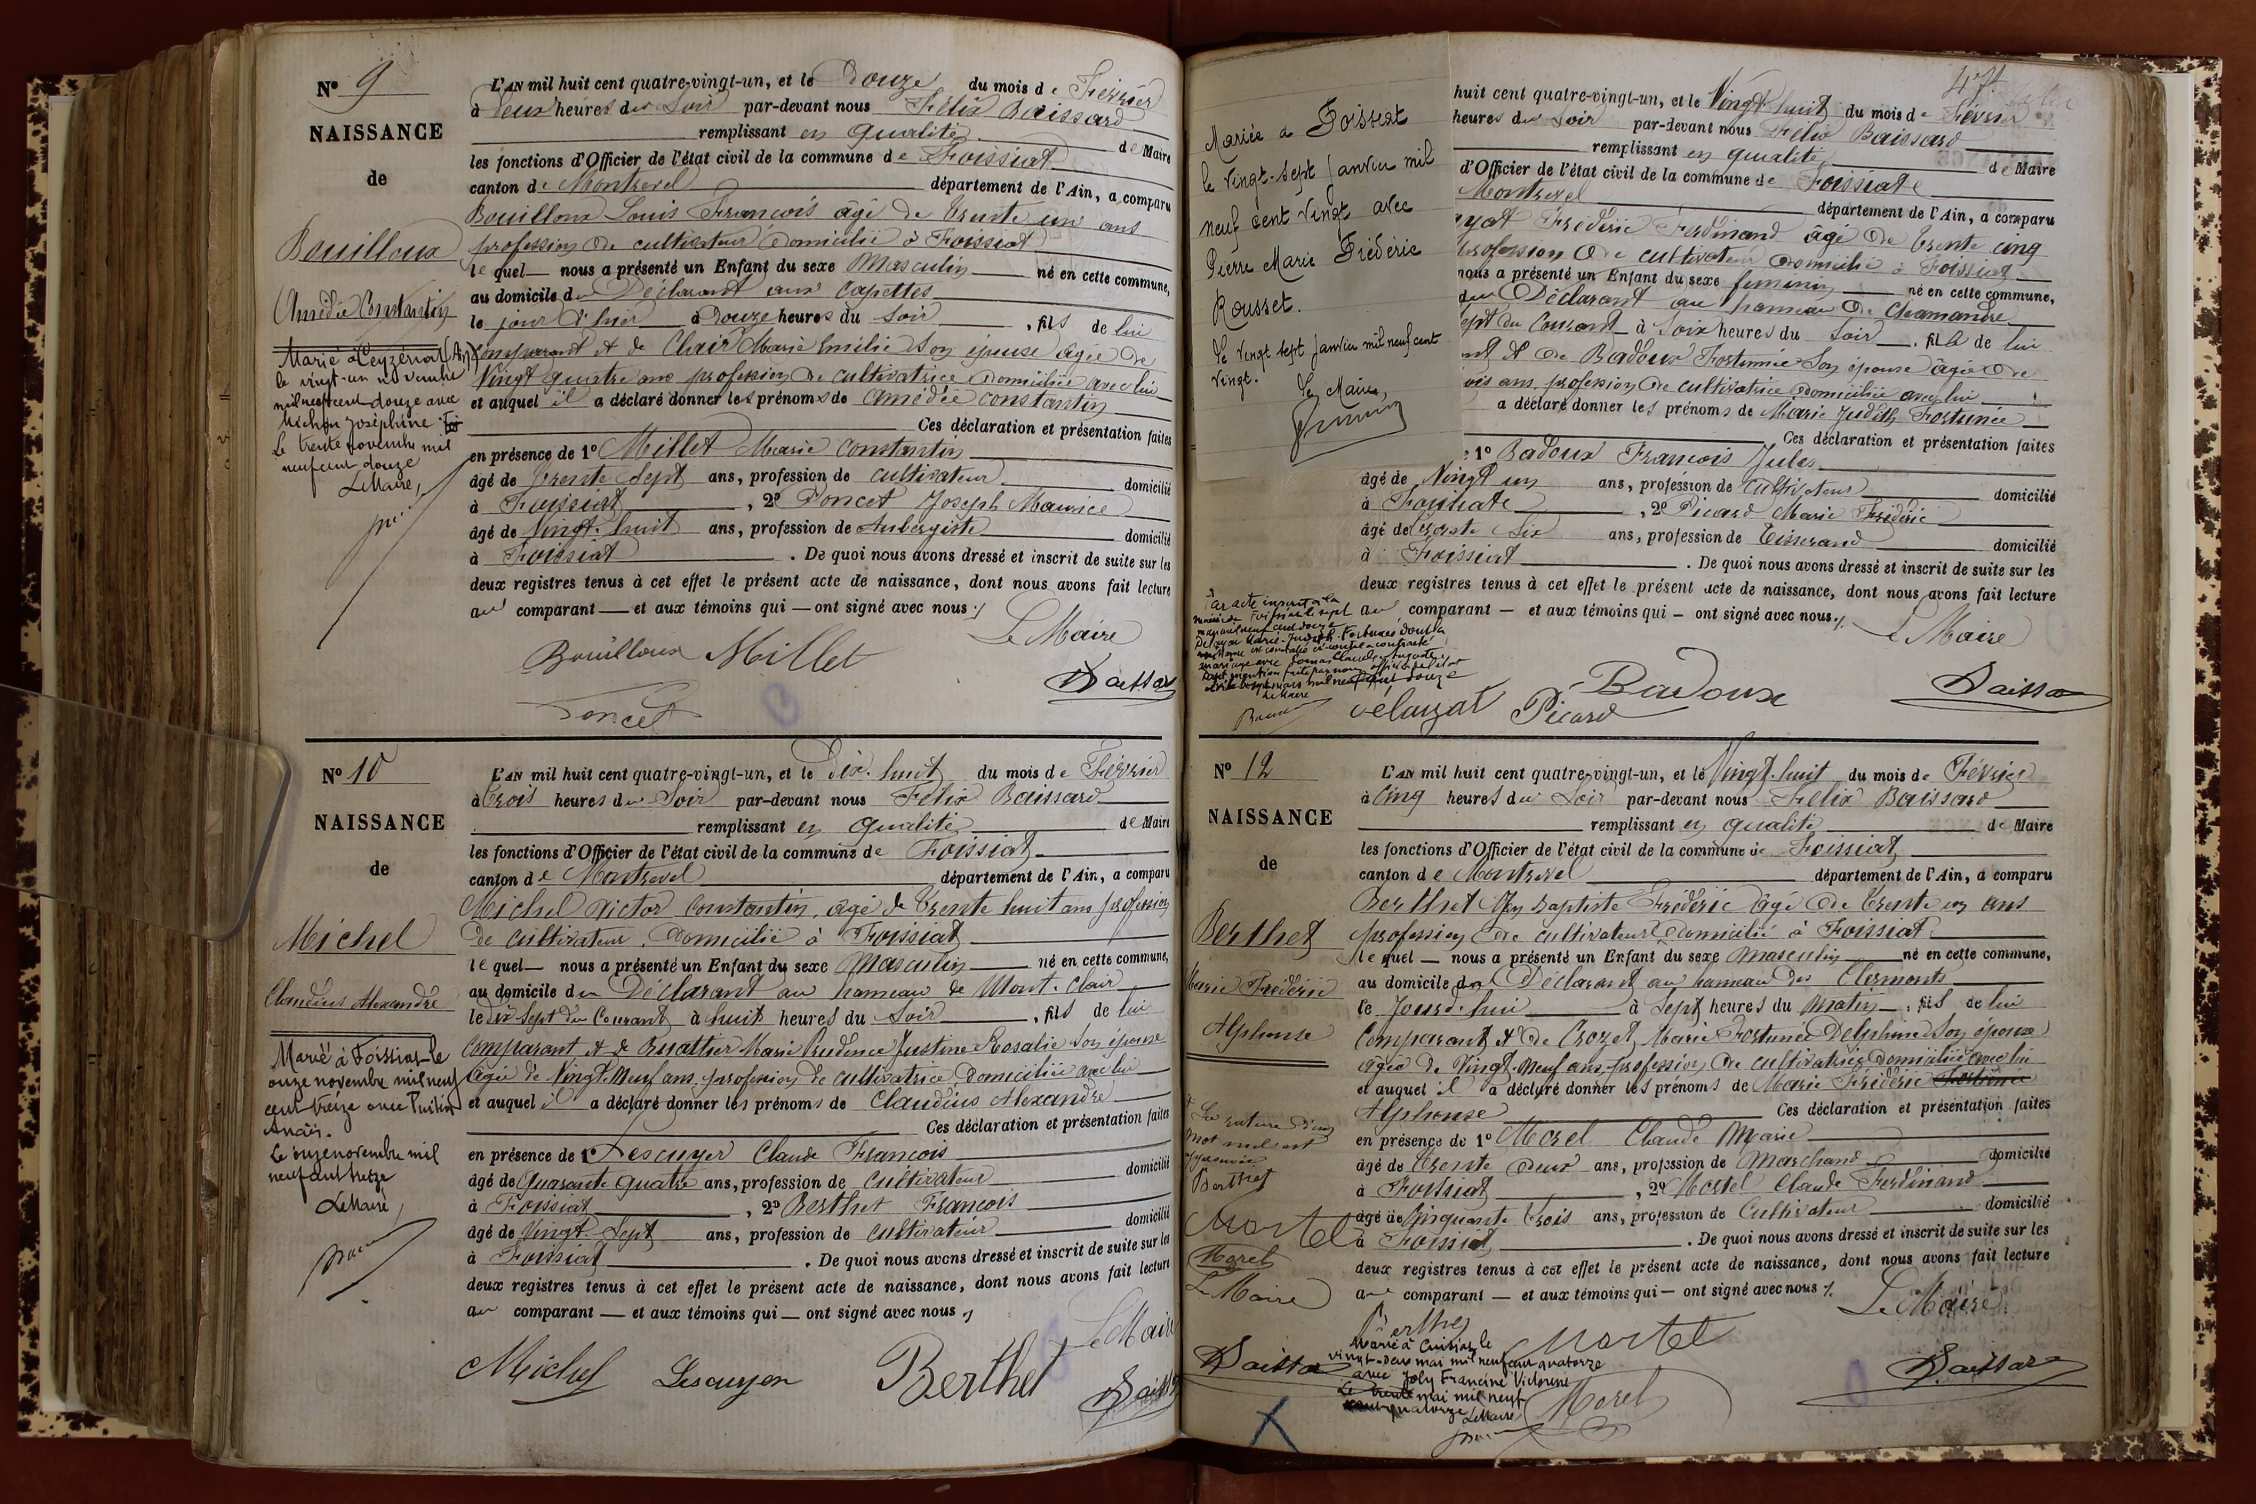 N° 9
NAISSANCE
de
Bouilloux
Amédée Constantin
Marié à Ceyzériat (Ain)
le vingt-un novembre
mil neuf cent douze avec
Michon Joséphine
Le trente novembre mil
neuf cent douze
Le Maire,
L'AN mil huit cent quatre-vingt-un, et le Douze du mois de Février
à deux heures du Soir par-devant nous Félix Baissard
remplissant en qualité de Maire
les fonctions d'Officier de l'état civil de la commune de Foissiat
canton de Montrevel département de l'Ain, a comparu
Bouilloux Louis François âgé de trente un ans
profession de cultivateur domicilié à Foissiat
lequel — nous a présenté un Enfant du sexe Masculin né en cette commune,
au domicile du Déclarant aux Capettes
le jour d'hier à Douze heures du Soir, fils de lui
Comparant et de Clair Marie Emilie Son épouse âgée de
Vingt quatre ans profession de cultivatrice domiciliée avec lui
et auquel il a déclaré donner les prénoms de Amédée Constantin
Ces déclaration et présentation faites
en présence de 1° Millet Marie Constantin
âgé de trente Sept ans, profession de cultivateur domicilié
à Foissiat, 2° Poncet Joseph Maurice
âgé de Vingt-huit ans, profession de Aubergiste domicilié
à Foissiat. De quoi nous avons dressé et inscrit de suite sur les
deux registres tenus à cet effet le présent acte de naissance, dont nous avons fait lecture
au comparant — et aux témoins qui — ont signé avec nous
Le Maire
Bouilloux Millet
Baissard
Poncet
N° 10
NAISSANCE
de
Michel
Claudius Alexandre
Marié à Foissiat le
onze novembre mil neuf
cent treize avec
Anaïs.
Le onze novembre mil
neuf cent treize
Le Maire,
L'AN mil huit cent quatre-vingt-un, et le Dix-huit du mois de Février
à trois heures du Soir par-devant nous Félix Baissard
remplissant en qualité de Maire
les fonctions d'Officier de l'état civil de la commune de Foissiat
canton de Montrevel département de l'Ain, a comparu
Michel Victor Constantin, âgé de trente huit ans profession
de cultivateur, domicilié à Foissiat
lequel — nous a présenté un Enfant du sexe Masculin né en cette commune,
au domicile du Déclarant au hameau de Mont-Clair
le dix Sept du Courant à huit heures du Soir, fils de lui
Comparant et de Marie Prudence Justine Rosalie Son épouse
âgée de Vingt-Neuf ans, profession de cultivatrice, domiciliée avec lui
et auquel il a déclaré donner les prénoms de Claudius Alexandre
Ces déclaration et présentation faites
en présence de 1° Lescuyer Claude François
âgé de Quarante quatre ans, profession de cultivateur domicilié
à Foissiat, 2° Berthet François
âgé de Vingt-Sept ans, profession de cultivateur domicilié
à Foissiat. De quoi nous avons dressé et inscrit de suite sur les
deux registres tenus à cet effet le présent acte de naissance, dont nous avons fait lecture
au comparant — et aux témoins qui — ont signé avec nous
Le Maire
Michel Lescuyer Berthet Baissard
47
Mariée à Foissiat
le vingt-sept Janvier mil
neuf cent vingt avec
Pierre Marie Frédéric
Rousset.
Le vingt sept janvier mil neuf cent
vingt.
Le Maire,
huit cent quatre-vingt-un, et le Vingt-huit du mois de Février
heures du Soir par-devant nous Félix Baissard
remplissant en qualité de Maire
d'Officier de l'état civil de la commune de Foissiat
Montrevel département de l'Ain, a comparu
Frédéric Ferdinand âgé de trente cinq
profession de cultivateur domicilié à Foissiat
nous a présenté un Enfant du sexe féminin né en cette commune,
du Déclarant au hameau de Chamandre
sept du Courant à Six heures du Soir, fille de lui
et de Badoux Fortunée Son épouse âgée de
ans, profession de cultivatrice domiciliée avec lui
a déclaré donner les prénoms de Marie Judith Fortunée
Ces déclaration et présentation faites
1° Badoux François Jules
âgé de Vingt un ans, profession de Cultivateur domicilié
à Foissiat, 2° Picard Marie Frédéric
âgé de trente Six ans, profession de Tisserand domicilié
à Foissiat. De quoi nous avons dressé et inscrit de suite sur les
deux registres tenus à cet effet le présent acte de naissance, dont nous avons fait lecture
au comparant — et aux témoins qui — ont signé avec nous
Par acte inscrit à la
mairie de Foissiat le sept
mars mil neuf cent douze
Marie-Judith-Fortunée dont la
naissance est constatée ci-contre a contracté
mariage avec
Le Maire
Le Maire
Badoux
Picard
Baissard
N° 12
NAISSANCE
de
Berthet
Marie Frédéric
Alphonse
La rature d'un
mot nul est
approuvée
Berthet
Mortel
Morel
Le Maire
Baissard
L'AN mil huit cent quatre-vingt-un, et le Vingt-huit du mois de Février
à Cinq heures du Soir par-devant nous Félix Baissard
remplissant en qualité de Maire
les fonctions d'Officier de l'état civil de la commune de Foissiat
canton de Montrevel département de l'Ain, a comparu
Berthet Jn Baptiste Frédéric âgé de trente un ans
profession de cultivateur domicilié à Foissiat
lequel — nous a présenté un Enfant du sexe Masculin né en cette commune,
au domicile du Déclarant au hameau des Clermonts
le Jourd'hui à Sept heures du Matin, fils de lui
Comparant et de Crozet Marie Fortunée Delphine Son épouse
âgée de Vingt-Neuf ans, profession de cultivatrice domiciliée avec lui
et auquel il a déclaré donner les prénoms de Marie Frédéric
Alphonse Ces déclaration et présentation faites
en présence de 1° Morel Claude Marie
âgé de trente deux ans, profession de Marchand domicilié
à Foissiat, 2° Mortel Claude Ferdinand
âgé de Cinquante trois ans, profession de Cultivateur domicilié
à Foissiat. De quoi nous avons dressé et inscrit de suite sur les
deux registres tenus à cet effet le présent acte de naissance, dont nous avons fait lecture
au comparant — et aux témoins qui — ont signé avec nous
Le Maire
Berthet Mortel
Marié à Cuisiat le
vingt-deux mai mil neuf cent quatorze
avec Joly Francine Victorine
Le trente mai mil neuf
cent quatorze
Le Maire
Morel
Baissard